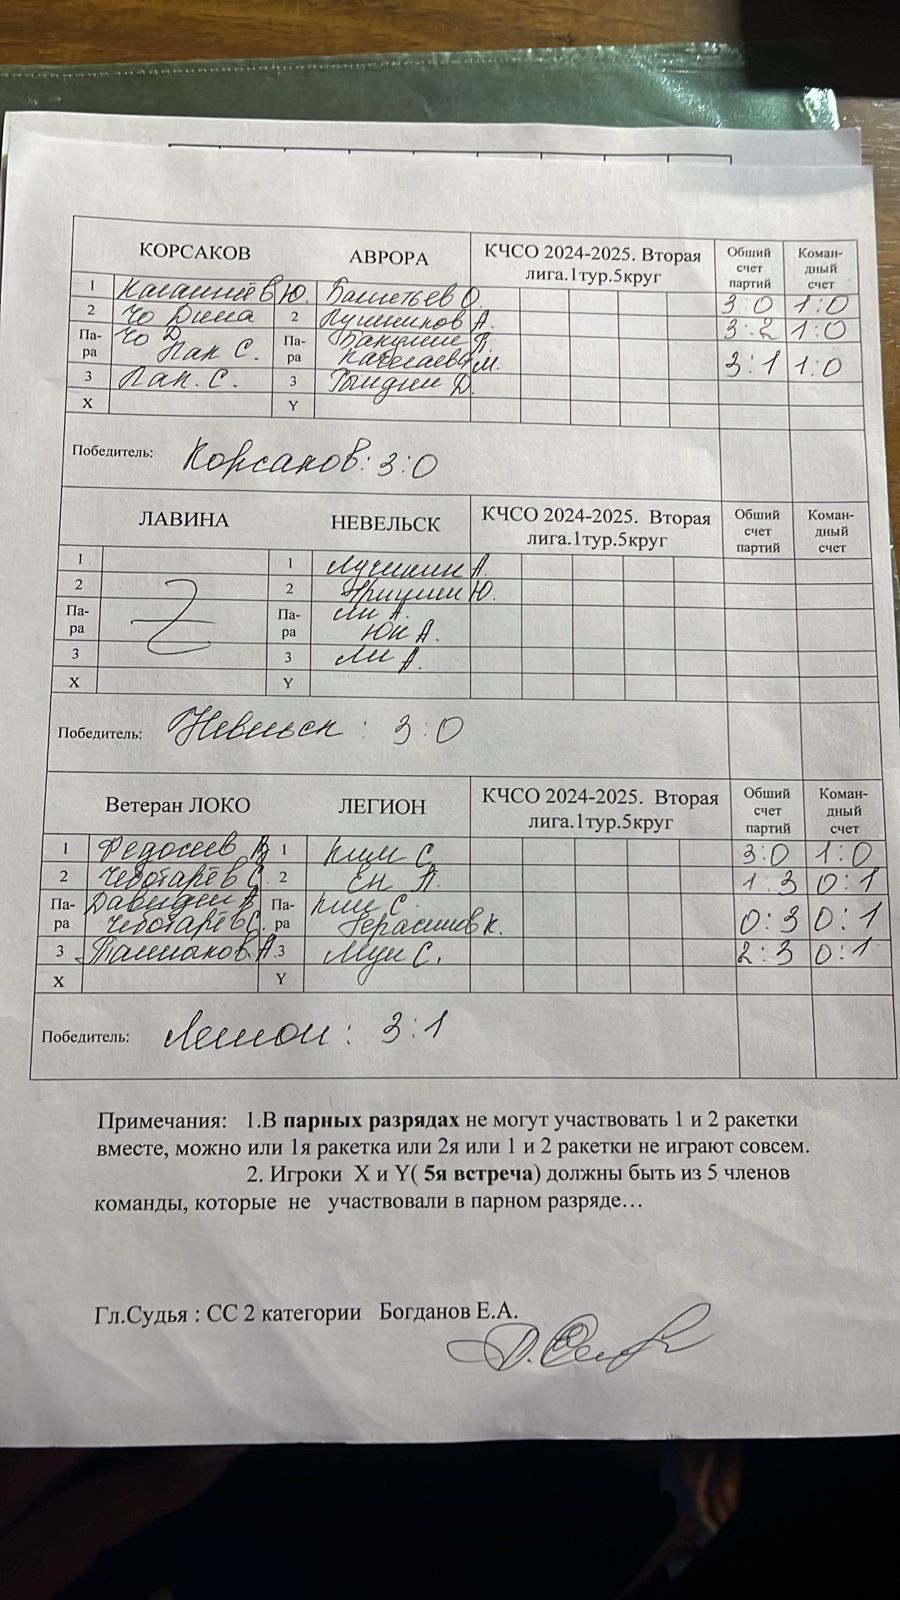 КОРСАКОВ АВРОРА КЧСО 2024-2025. Вторая лига.1тур.5круг Общий счет партий Коман-дный счет
1 Ю. О. 3:0 1:0
2 Чо Дима 2 Лушников А. 3:2 1:0
Па-ра Чо Д. Пак С. Па-ра 3:1 1:0
3 Пак. С. 3 Д.
X Y
Победитель: Корсаков: 3:0
ЛАВИНА НЕВЕЛЬСК КЧСО 2024-2025. Вторая лига.1тур.5круг Общий счет партий Коман-дный счет
1 1 А.
2 2 Гришин Ю.
Па-ра Па-ра Ли А. Юн А.
3 3 Ли А.
X Y
Победитель: Невельск: 3:0
Ветеран ЛОКО ЛЕГИОН КЧСО 2024-2025. Вторая лига.1тур.5круг Общий счет партий Коман-дный счет
1 Федосеев В 1 Ким С 3:0 1:0
2 Чеботарёв С. 2 Ен А. 1:3 0:1
Па-ра Давидян Чеботарёв С. Па-ра Ким С. Герасимов К. 0:3 0:1
3 А. 3 Мун С. 2:3 0:1
X Y
Победитель: Легион: 3:1
Примечания: 1.В парных разрядах не могут участвовать 1 и 2 ракетки
вместе, можно или 1я ракетка или 2я или 1 и 2 ракетки не играют совсем.
2. Игроки X и Y( 5я встреча) должны быть из 5 членов
команды, которые не участвовали в парном разряде…
Гл.Судья : СС 2 категории Богданов Е.А.